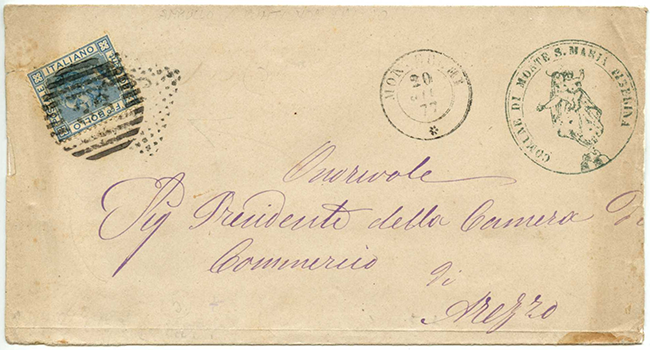 ITALIANO
20
77
COMUNE DI MONTE S. MARIA TIBERINA
Onorevole
Sig Presidente della Camera di
Commercio
di
Arezzo